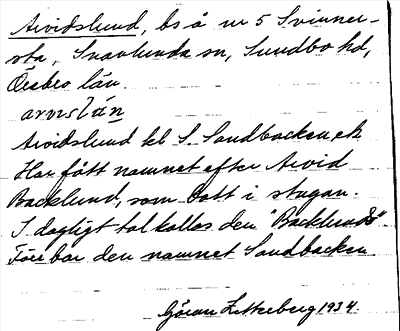 Arvidslund, bs å nr 5 Svinner-
sta, Snavlunda sn, Sundbo hd,
Örebro län.
arvɪslún
Arvidslund kl S. Sandbacken, ek
Har fått namnet efter Arvid
Backlund, som bott i stugan.
I dagligt tal kallas den "Backlunds".
Förr bar den namnet Sandbacken.
Göran Zetterberg 1934.